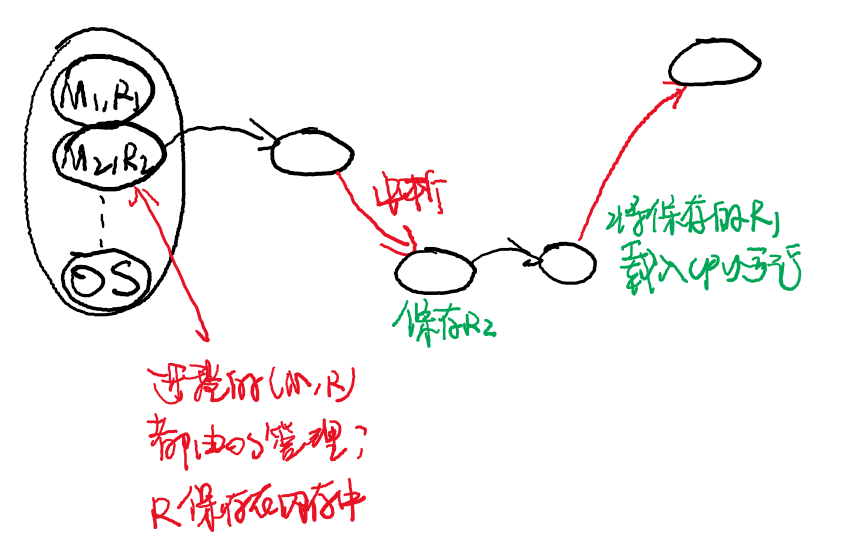 M1,R1
M2,R2
OS
中断
保存R2
将保存的R1
载入CPU运行
进程的(M,R)
都由OS管理;
R保存在内存中